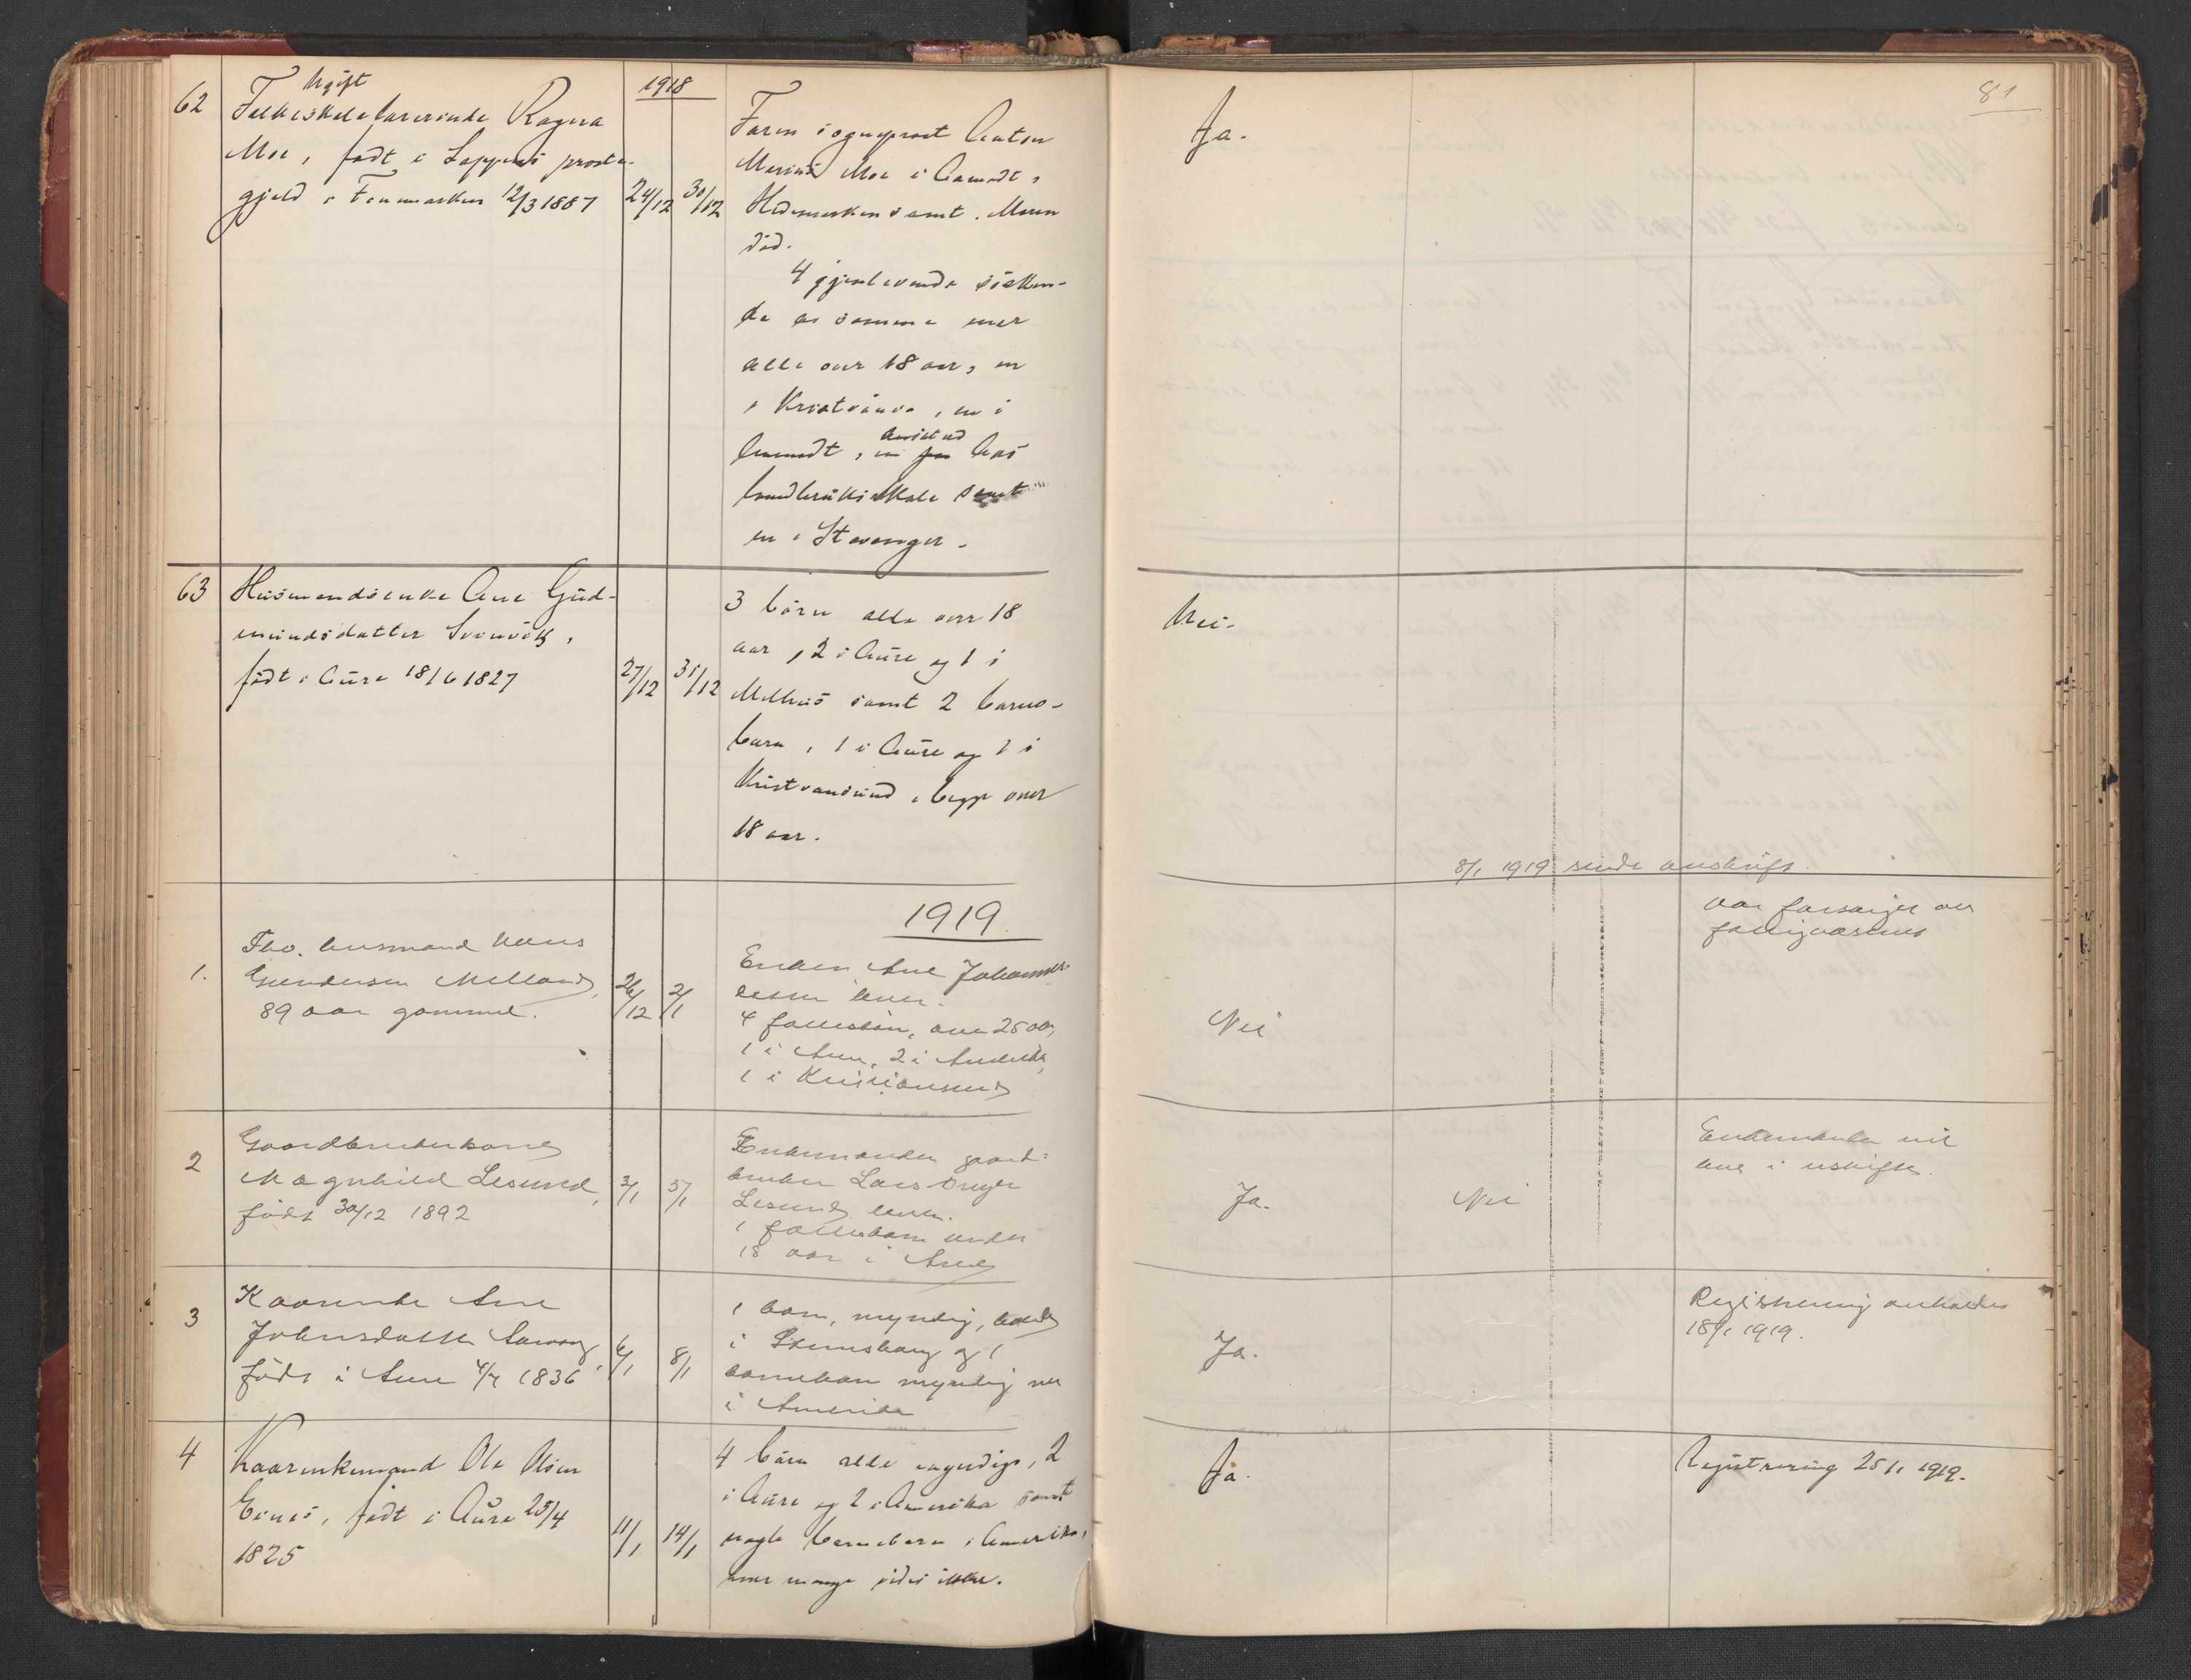 81
1918
62
Ugift
Folkeskolelærerinde Ragna
Moe, født i Loppens præste-
gjeld i Finmarken 12/3 1887
24/12
30/12
Faren sogneprest Anton
Marius Moe i Aamodt i
Hedemarkens amt. Moren
död.
4 gjenlevende sösken-
de av samme
alle over 18 aar, en
i Kristiania, en i
Aamodt, en ansat ved Aas
landbruksskole samt
en i Stavanger.
Ja.
63
Husmandsenke Ane Gud-
mundsdatter Svinvik,
födt i Aure 18/6 1827
27/12
31/12
3 börn alle over 18
aar, 2 i Aure og 1 i
Melhus samt 2 barne-
barn, 1 i Aure og 1 i
Kristiansund, begge over
18 aar.
Nei.
8/1 1919 sendt avskrift.
1919
1.
Fhv. husmand Hans
Gundersen Melland,
89 aar gammel.
26/12
2/1
Enken Ane Johannes-
lever.
4 fællesbörn, over 25 aar,
1 i Aure, 2 i Amerika,
1 i Kristiansund
Nei
var forsörget av
fattigvæsenet
2
Gaardbrukerkone
Magnhild Lesund,
födt 30/12 1892
3/1
5/1
Enkemanden gaard-
bruker Lars
Lesund lever.
1 fællesbarn under
18 aar i Aure
Ja.
Nei
Enkemanden vil
bli i uskifte.
3
Kaarenke Ane
Johnsdatter
födt i Aure 4/7 1836
6/1
8/1
1 barn, myndig, bosat
i Stemshaug og 1
barnebarn myndig
i Amerika
Ja.
Registrering avholdes
18/1 1919.
4
Kaarenkemand Ole Olsen
födt i Aure 25/4
1825
11/1
14/1
4 börn alle myndige, 2
i Aure og 2 i Amerika samt
nogle barnebarn i Amerika,
hvor mange vides ikke.
Ja.
Registrering 25/1 1919.